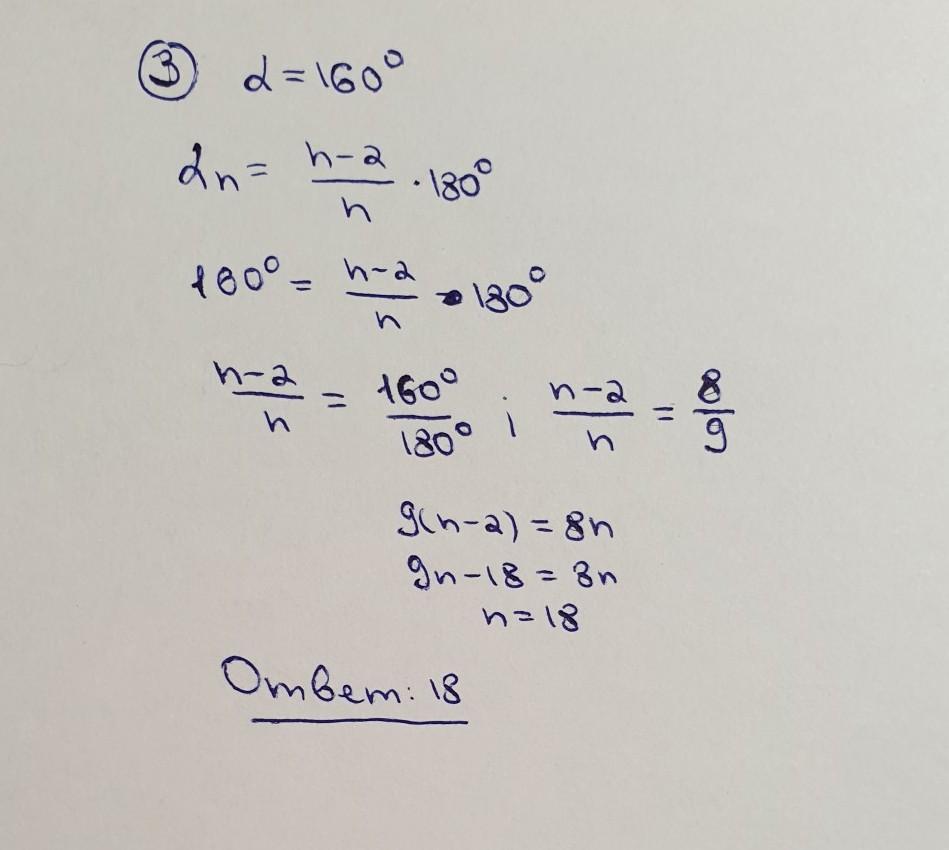 ③ α = 160°
αₙ = (n-2)/n · 180°
160° = (n-2)/n · 180°
(n-2)/n = 160°/180° ; (n-2)/n = 8/9
9(n-2) = 8n
9n-18 = 8n
n = 18
Ответ: 18